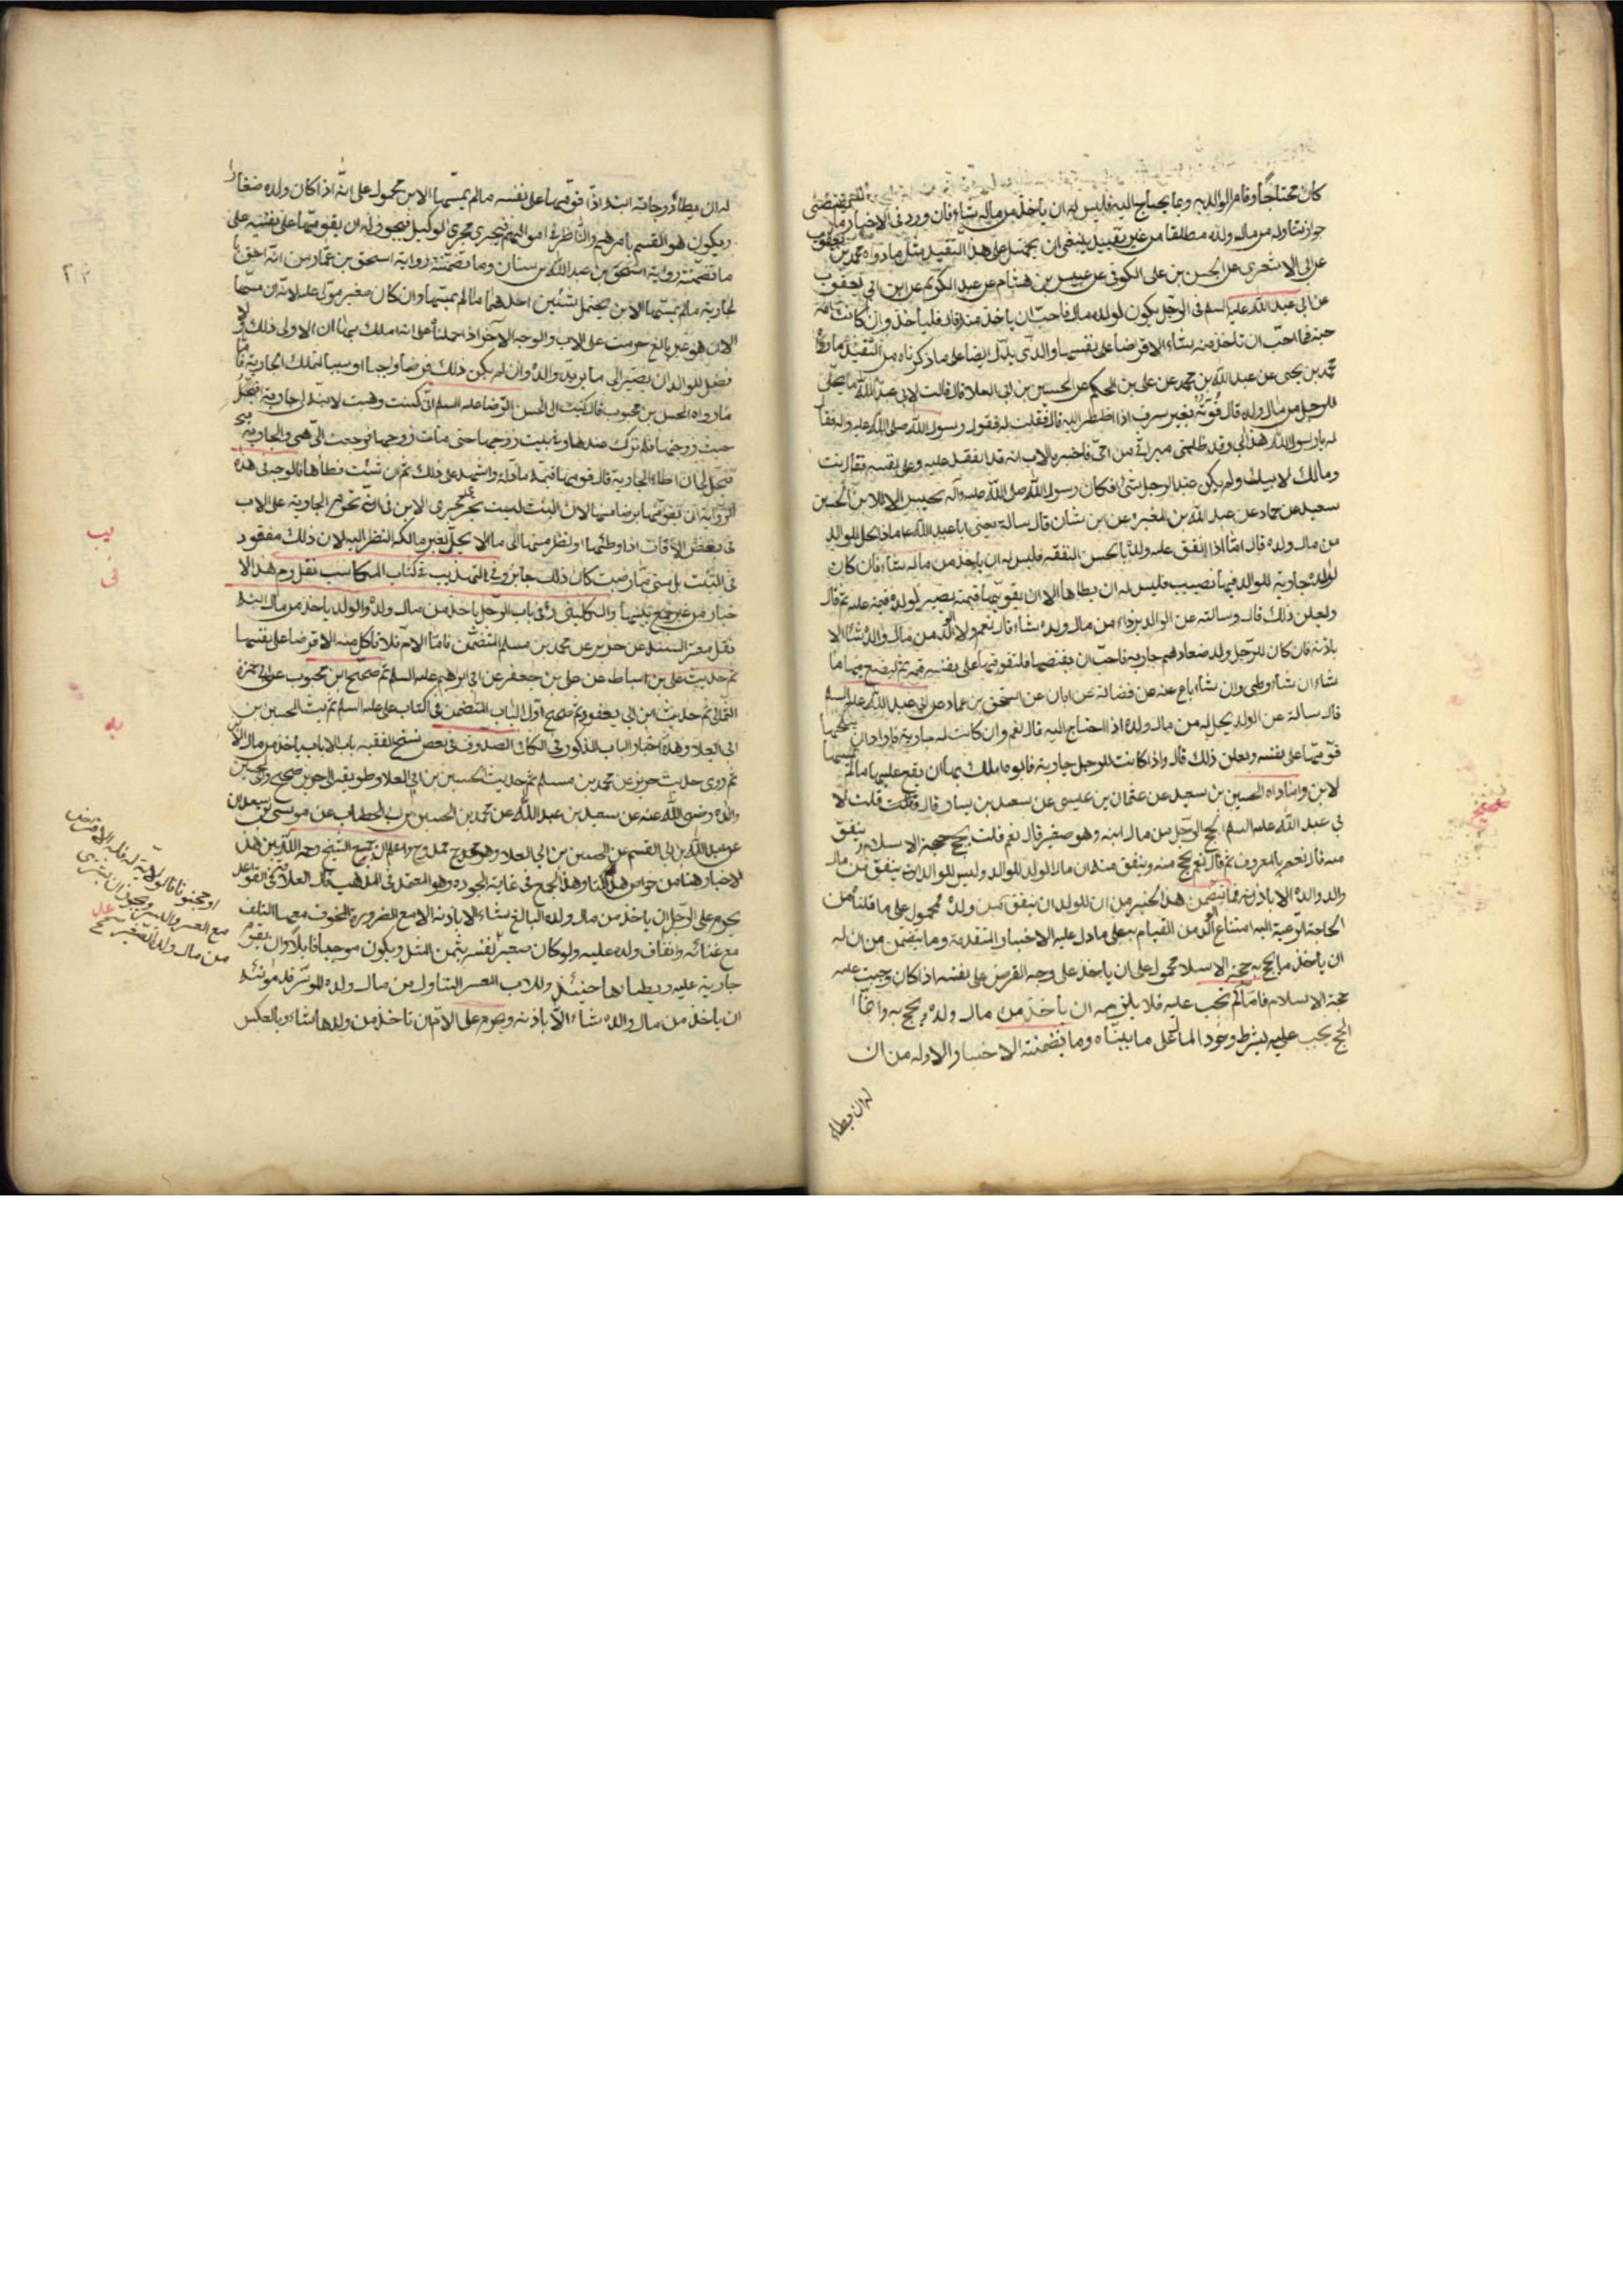 كان محتاجًا وقام الولد به وبما يحتاج اليه فليس له ان ياخذ من ماله شئا فان ورد في الاخبار ما يقتضي
جواز تناوله من مال ولده مطلقا من غير تقييد ينبغي ان يحمل على هذا التقييد مثل ما رواه محمد بن يعقوب
عن ابي الاشعري عن الحسن بن علي الكوفي عن عبيس بن هشام عن عبد الكريم عن ابن ابي يعفور
عن ابي عبد الله عليه السلم في الرجل يكون لولده مال فاحب ان ياخذ منه قال فلياخذ وان كانت امه
حية فما احب ان تاخذ منه شئا الا قرضا على نفسها والذي يدل ايضا على ما ذكرناه من التقييد ما رواه
محمد بن يحيى عن عبد الله بن محمد عن علي بن الحكم عن الحسين بن ابي العلا قال قلت لابي عبد الله ما يحل
للرجل من مال ولده قال قوته بغير سرف اذا اضطر اليه قال فقلت له فقول رسول الله صلى الله عليه وآله
يا رسول الله هذا ابي وقد ظلمني ميراثي من امي فاخبره الاب انه قد انفقه عليه وعلى نفسه فقال انت
ومالك لابيك ولم يكن عند الرجل شئ افكان رسول الله صلى الله عليه وآله يحبس الاب للابن الحسين
سعيد عن حماد عن عبد الله بن المغيره عن ابن سنان قال سالته يعني ابا عبد الله ع ما ذا يحل للوالد
من مال ولده قال اما اذا انفق عليه ولده باحسن النفقه فليس له ان ياخذ من ماله شئا فان كان
لوالده جارية للولد فيها نصيب فليس له ان يطاها الا ان يقومها قيمة يصير لولده قيمته عليه ثم قال
ويعلن ذلك قال وسالته عن الوالد يرزاء من مال ولده شئا قال نعم ولا الولد من مال والده شئا الا
باذنه فان كان للرجل ولد صغار لهم جارية فاحب ان يفتضها فليقومها على نفسه قيمة ثم ليصنع بها ما
شاء ان شاء وطي وان شاء باع عنه عن فضالة عن ابان عن اسحق بن عمار عن ابي عبد الله عليه السلم
قال سالته عن الوالد يحل له من مال ولده اذا احتاج اليه قال نعم وان كانت له جارية فاراد ان ينكحها
قومها على نفسه ويعلن ذلك قال واذا كانت للرجل جارية فابوه املك بها ان يقع عليها ما لم يمسها
الابن واما ما رواه الحسين بن سعيد عن عثمان بن عيسى عن سعيد بن يسار قال قلت لا
بي عبد الله عليه السلم ايحج الرجل من مال ابنه وهو صغير قال نعم قلت يحج حجة الاسلام وينفق
منه قال نعم بالمعروف ثم قال نعم يحج منه وينفق منه ان مال الولد للوالد وليس للولد ان ينفق من مال
والده الا باذنه فما يتضمن هذا الخبر من ان للوالد ان ينفق من ولده محمول على ما قلناه من
الحاجة الداعية اليه امتناع الولد من القيام به على ما دل عليه الاخبار المتقدمة وما يتضمن من ان له
ان ياخذ ما يحج به حجة الاسلام محمول على ان ياخذ على وجه القرض على نفسه اذا كان وجبت عليه
حجة الاسلام فاما لم تجب عليه فلا يلزمه ان ياخذ من مال ولده ويحج به وانما
الحج يجب عليه بشرط وجود المال على ما بيناه وما يضمنته الاخبار الاوله من ان
له ان يطاء
له ان يطاء جارية ابنه اذا قومها على نفسه ما لم يمسها الابن محمول على انه اذا كان ولده صغارا
ويكون هو القيم بامرهم والناظر في اموالهم فيجري مجرى الوكيل فيجوز له ان يقومها على نفسه على
ما تضمنته رواية اسحق بن عبد الله بن سنان وما تضمنته رواية اسحق بن عمار من انه احق
بالجارية ما لم يمسها الابن يحتمل شئين احدهما ما لم يمسها وان كان صغير مولى عليه لانه ان مسها
الابن هو غير بالغ حرمت على الاب والوجه الاخر اذا حملناه على انه املك بها ان الاولى ذلك ولا
فضل للولد ان يصير الى ما يريد والده وان لم يكن ذلك فرضا واجبا او سببا لتملك الجارية فاما
ما رواه الحسن بن محبوب قال كتبت الى ابي الحسن الرضا عليه السلم اني كنت وهبت لابنة لي جارية
حيث زوجتها فلم تزل عندها وفي بيت زوجها حتى مات زوجها فرجعت الي هي والجارية
فيحل لي ان اطاء الجارية قال قومها قيمة عادلة واشهد على ذلك ثم ان شئت فطاها فالوجه في هذه
الرواية ان يقومها برضا منها لان البنت ليست تجري مجرى الابن في انه تحرم الجارية على الاب
في بعض الاوقات اذا وطئها او نظر منها الى ما لا يحل لغير مالكه النظر اليه لان ذلك مفقود
في البنت بل متى رضيت كان ذلك جايز وفي التهذيب في كتاب المكاسب نقل هذه الا
خبار من غير جمع بينها والكليني في باب الرجل ياخذ من مال ولده والولد ياخذ من مال ابيه
نقل معتر السند عن حريز عن محمد بن مسلم المتضمن فاما الام فلا تاكل منه الا قرضا على نفسها
ثم حديث علي بن اسباط عن علي بن جعفر عن ابي ابرهيم عليه السلم ثم صحيح ابن محبوب عن ابي حمزه
الثمالي ثم حديث ابن ابي يعفور ثم صحيح اول الباب المتضمن في كتاب علي عليه السلم ثم حديث الحسين بن
ابي العلا وهذه اخبار الباب المذكور في الكافي الصدوق في بعض نسخ الفقيه باب الاب ياخذ من مال الابن
ثم روى حديث حريز عن محمد بن مسلم ثم حديث الحسين بن ابي العلا وطريقه الى حريز صحيح والى الحسين
والده رضي الله عنه عن سعد بن عبد الله عن محمد بن الحسين بن ابي الخطاب عن موسى بن سعدان
عن عبد الله بن ابي القسم عن الحسين بن ابي العلا وهو ممدوح واعلم ان جمع الشيخ رحمه الله بين هذه
الاخبار هنا من خواص هذا الكتاب وهذا الجمع في غاية الجوده وهو المعتمد في المذهب قال العلامة في القواعد
يحرم على الرجل ان ياخذ من مال ولده البالغ شئا الا باذنه الا مع الضرورة المخوف معها التلف
مع غنائه وانفاق ولده عليه ولو كان صغيرا لنفسه بثمن المثل ويكون موجبا قابلا وان يقوم
جارية عليه ويطاءها حينئذ وللاب المعسر التناول من مال ولده الموسر قدر مؤنته
ان ياخذ من مال والده شئا الا باذنه ويحرم على الام ان تاخذ من ولدها شئا وبالعكس
او مجنونا فالولاية له فله الاقتراض
مع العسر واليسر ويجوز ان يشتري
من مال ولده الصغير
صح
يب
في
به
صحيح